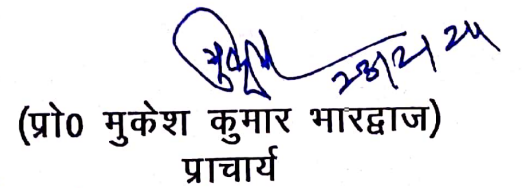 मुकेश 23/2/24
(प्रो0 मुकेश कुमार भारद्वाज)
प्राचार्य